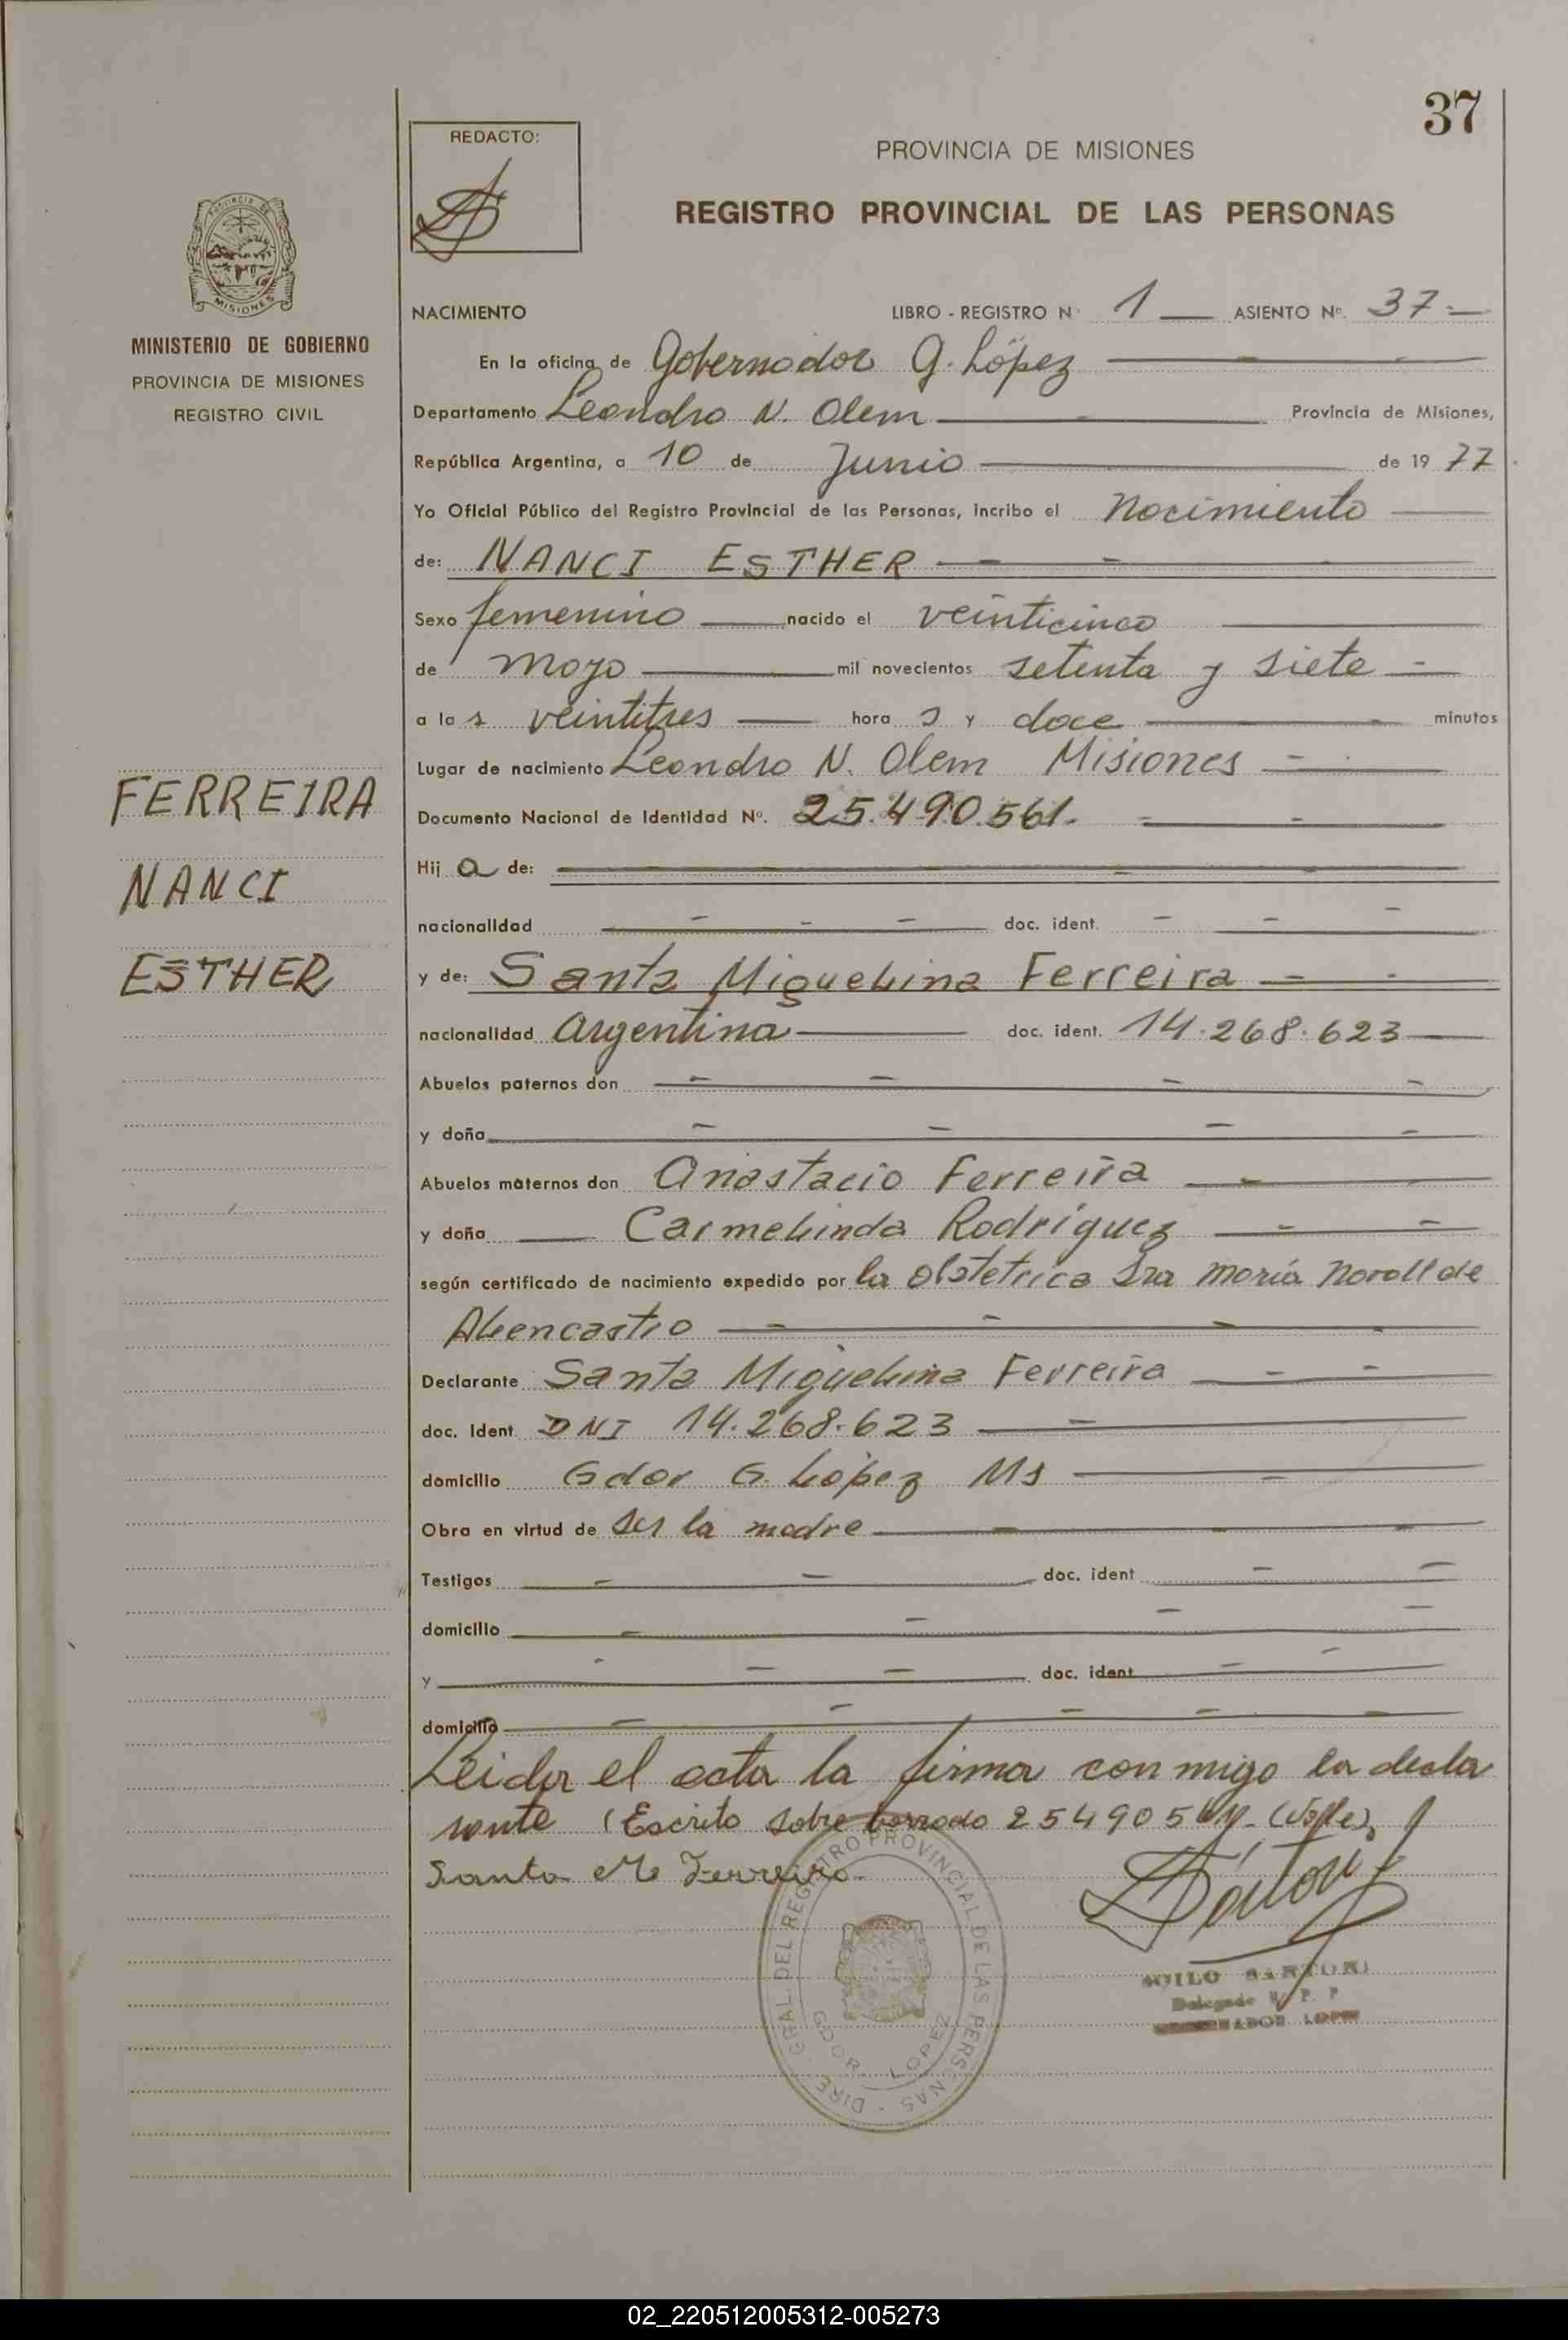 37
REDACTO:
PROVINCIA DE MISIONES
REGISTRO PROVINCIAL DE LAS PERSONAS
PROVINCIA DE
MISIONES
MINISTERIO DE GOBIERNO
PROVINCIA DE MISIONES
REGISTRO CIVIL
FERREIRA
NANCI
ESTHER
NACIMIENTO LIBRO - REGISTRO Nº 1 — ASIENTO Nº. 37 —
En la oficina de Gobernador G. López
Departamento Leandro N. Alem Provincia de Misiones,
República Argentina, a 10 de Junio de 19 77
Yo Oficial Público del Registro Provincial de las Personas, incribo el Nacimiento
de: NANCI ESTHER
Sexo femenino nacido el veinticinco
de mayo mil novecientos setenta y siete
a las veintitres horas y doce minutos
Lugar de nacimiento Leandro N. Alem Misiones
Documento Nacional de Identidad Nº. 25.490.561.
Hija de:
nacionalidad doc. ident.
y de: Santa Miguelina Ferreira
nacionalidad Argentina doc. ident. 14.268.623
Abuelos paternos don
y doña
Abuelos maternos don Anastacio Ferreira
y doña Carmelinda Rodríguez
según certificado de nacimiento expedido por la Obstetrica Sra María de
Alencastro
Declarante Santa Miguelina Ferreira
doc. Ident DNI 14.268.623
domicilio Gdor G. López Ms
Obra en virtud de ser la madre
Testigos doc. ident
domicilio
y doc. ident
domicilio
Leida el acta la firma con migo la decla
rante (Escrito sobre borrado (Vale).
Santa M Ferreira
DIRE. GRAL. DEL REGISTRO PROVINCIAL DE LAS PERSONAS
GDOR. LOPEZ
SANTORI
Delegado R. P. P
GOBERNADOR LOPEZ
02_220512005312-005273